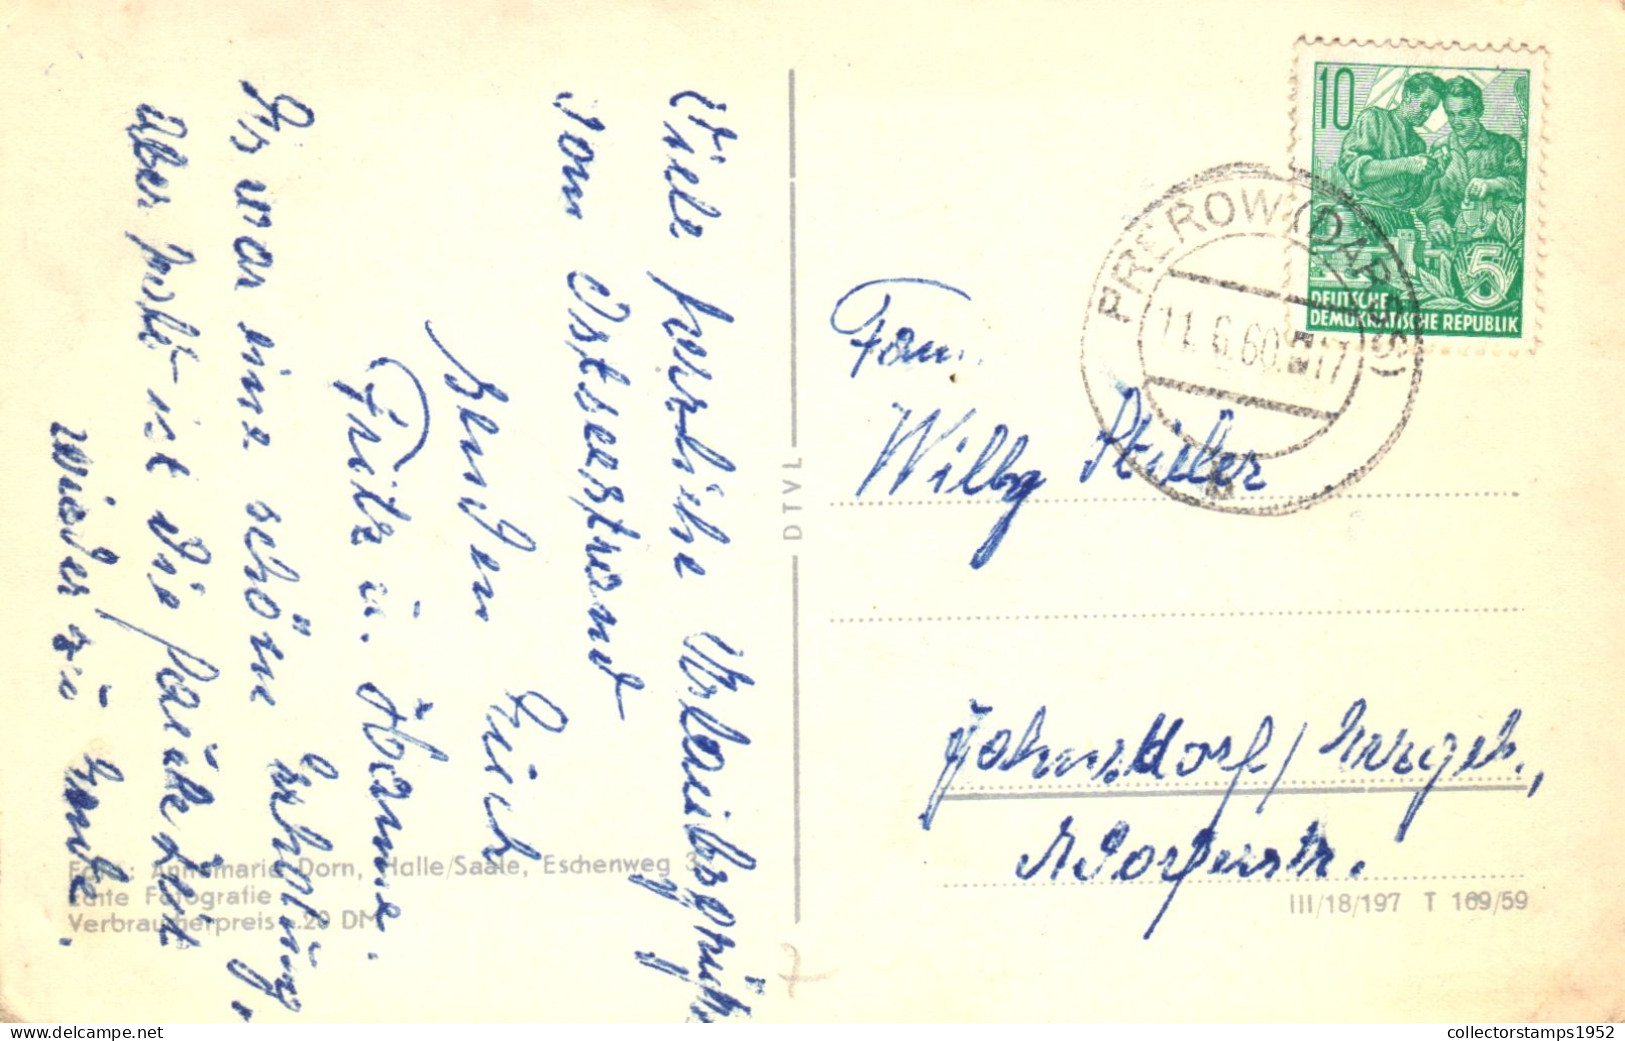 Viele herzliche Urlaubsgrüße
vom Ostseestrand
senden Euch
Fritz u. Hanne.
Es war eine schöne Erholung,
aber jetzt ist die
wieder zu Ende.
Foto: Annemarie Dorn, Halle/Saale, Eschenweg 3
Echte Fotografie
Verbraucherpreis -.20 DM
DTVL
10
5
DEUTSCHE
DEMOKRATISCHE REPUBLIK
PREROW (DARSS)
11.6.60.-17
b
Fam.
Willy Stüler
Jahnsdorf / Erzgeb.,
Adorferstr.
III/18/197 T 169/59
collectorstamps1952